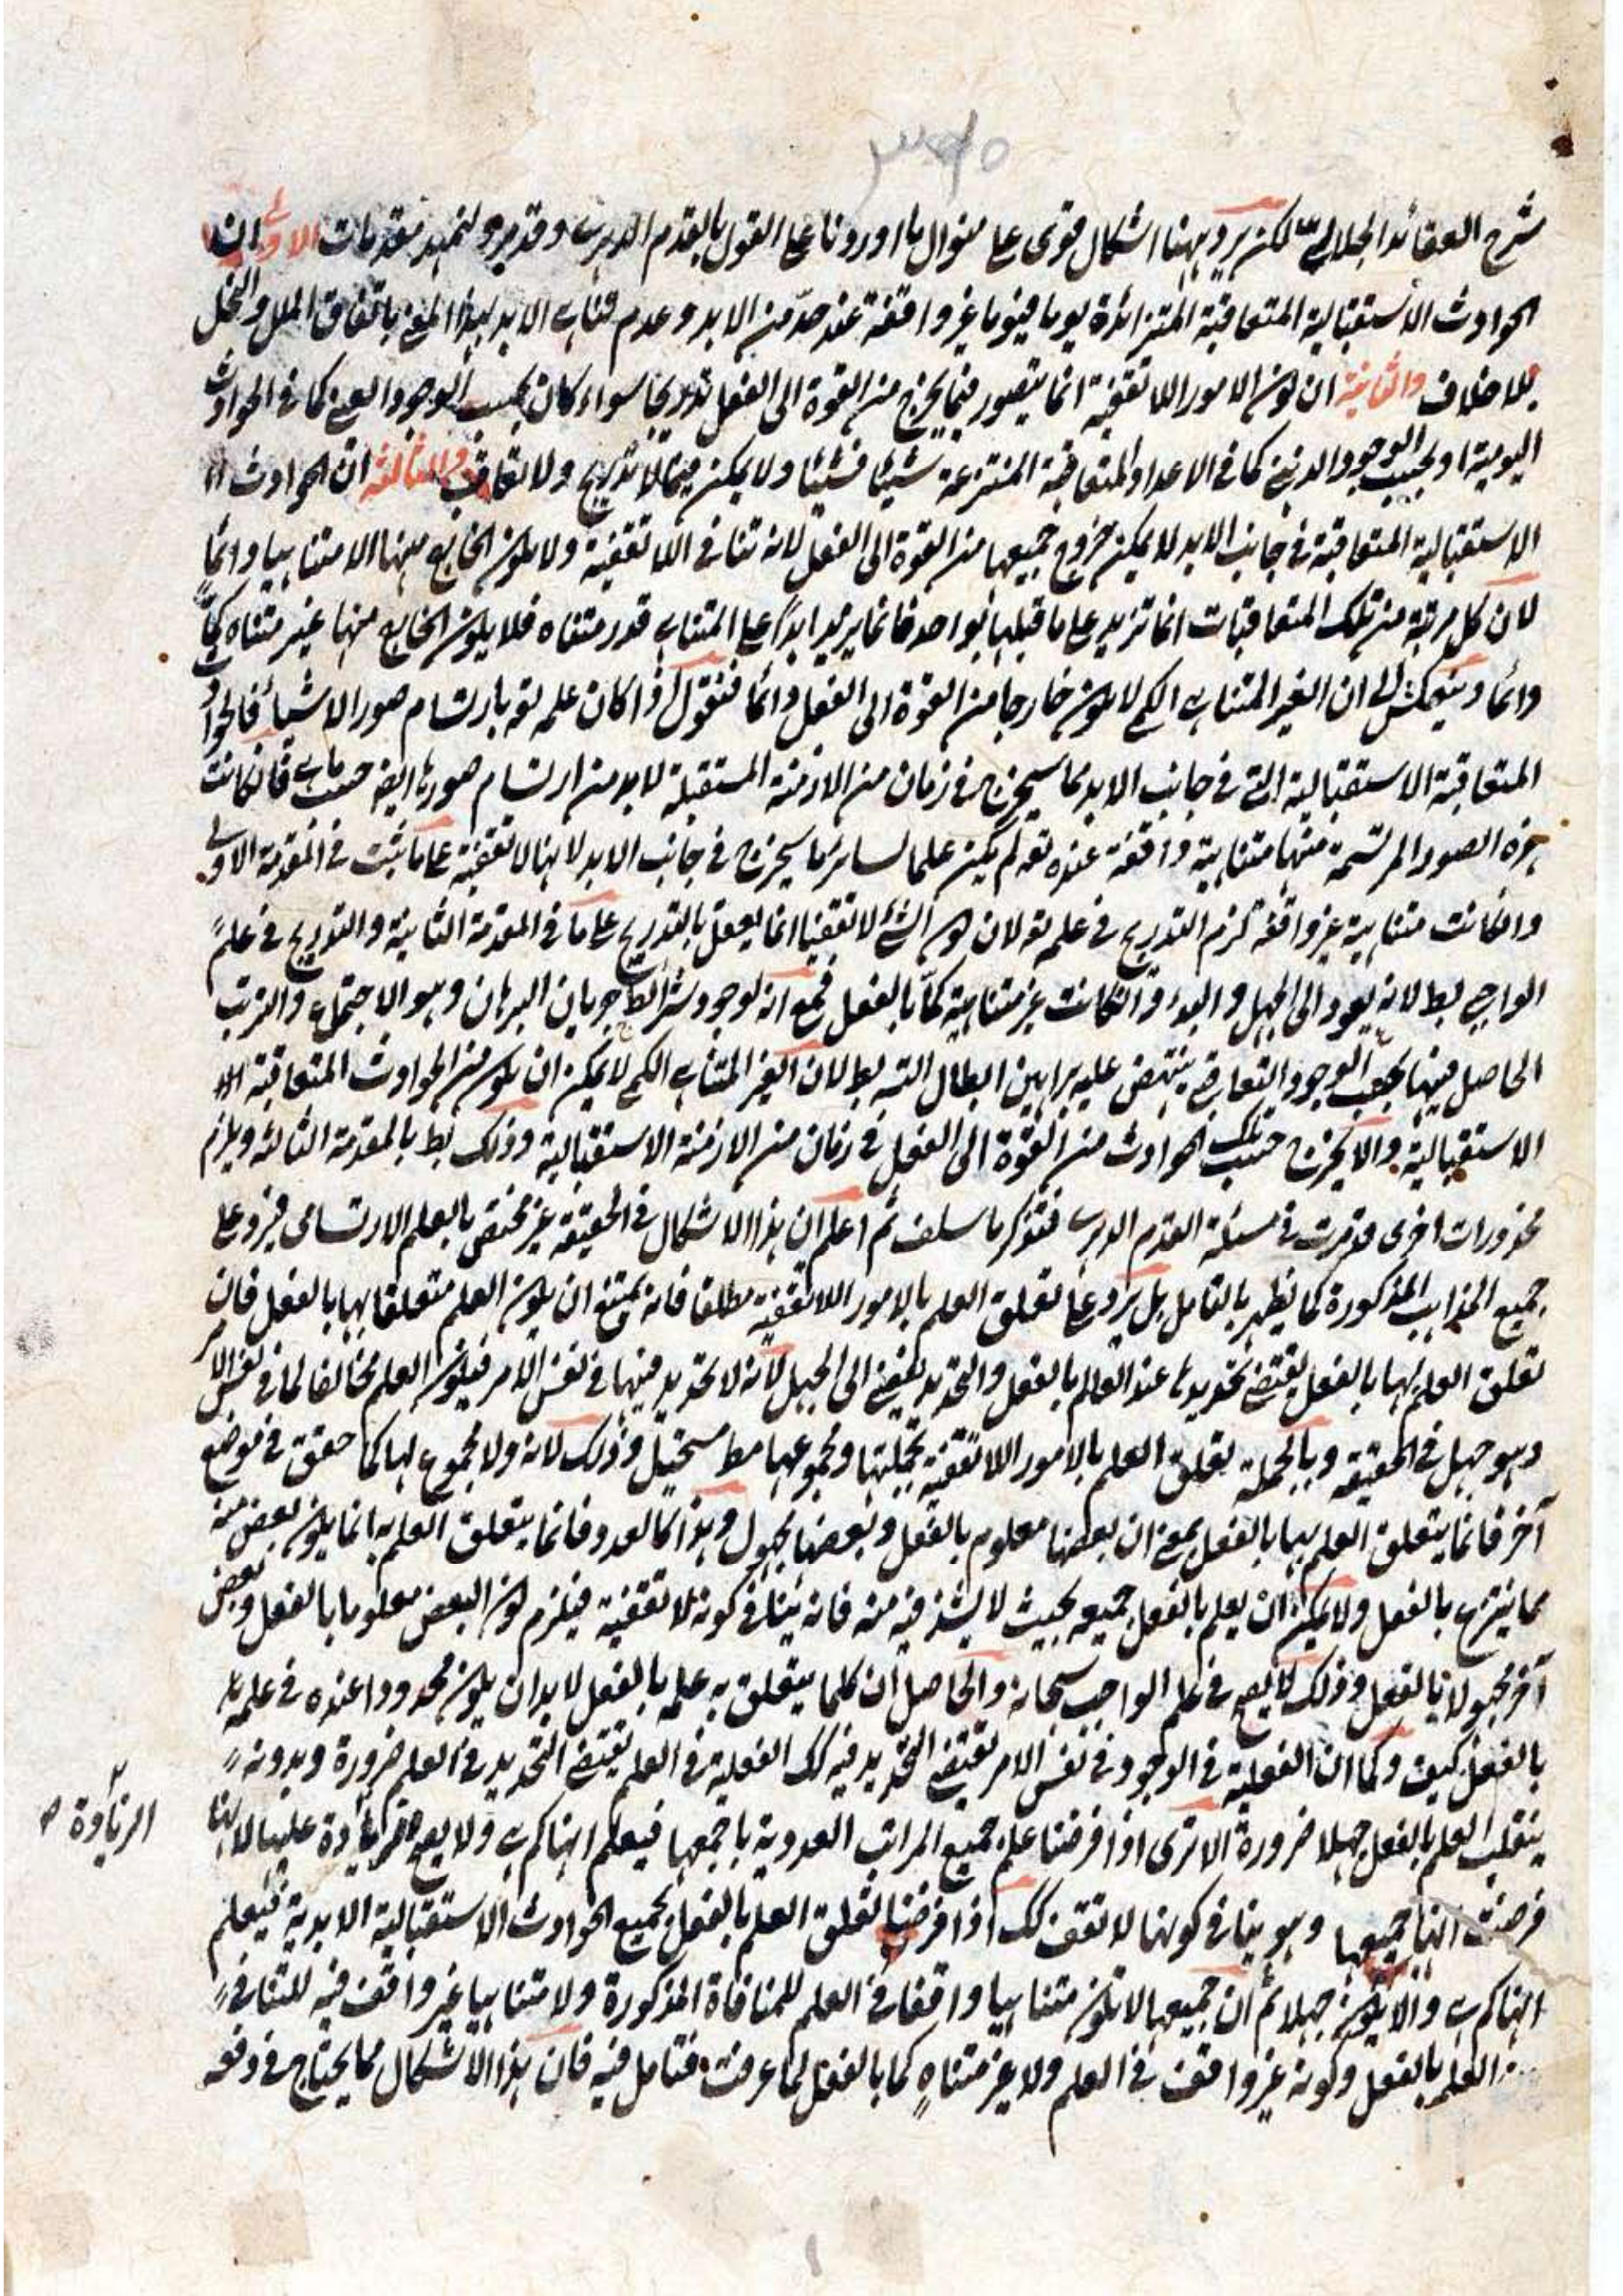 شرح العقائد الجلالي لكن يرد ههنا اشكال قوى على منوال ما اوردنا على القول بالقدم الدهرى وقد مر ولنمهد مقدمات الاولى ان
الحوادث الاستقبالية المتعاقبة المتزائدة يوما فيوما غير واقفة عند حدّ من الابد وعدم تناهى الابد بهذا المعنى باتفاق الملل والنحل
بلا خلاف والثانية ان كون الامور اللا تقفية انما يتصور فيما يخرج من القوة الى الفعل تدريجا سواء كان بحسب الوجود العينى كما فى الحوادث
اليومية او بحسب الوجود الذهنى كما فى الاعداد المتعاقبة المنتزعة شيئا فشيئا ولا يمكن فيما لا تدريج ولا تعاقب والثالثة ان الحوادث الا
الاستقبالية المتعاقبة فى جانب الابد لا يمكن خروج جميعها من القوة الى الفعل لانه تنافى اللا تقفية ولا يكون الخارج منها الا متناهيا دائمًا
لان كل مرتبة من تلك المتعاقبات انما تزيد على ما قبلها بواحد فانما يزيد ابدًا على المتناهى قدر متناه فلا يكون الخارج منها غير متناه كمًّا
دائما وينعكس الى ان الغير المتناهى الكمى لا يكون خارجا من القوة الى الفعل دائما فنقول اذا كان علمه تع بارتسام صور الاشياء فالحوادث
المتعاقبة الاستقبالية التى فى جانب الابد مما سيخرج فى زمان من الازمنة المستقبلة لابد من ارتسام صورها ايضا فان كانت
هذه الصور المرتسمة منها متناهية واقفة عنده تع لم يكن علما لسائر ما سيخرج فى جانب الابد لانها لا تقفية على ما ثبت فى المقدمة الاولى
وان كانت متناهية غير واقفة لزم التدريج فى علمه تع لان كون الشئ لا تقفيا انما يعقل بالتدريج على ما فى المقدمة الثانية والتدريج فى علم
الواجب بط لانه يعود الى الجهل والبدء وان كانت غير متناهية كمّا بالفعل فمع انه لوجود شرائط جريان البرهان وهو الاجتماع والترتب
الحاصل فيها بحسب الوجود التعاقبى ينتهض عليه براهين ابطال التسـ بط لان الغير المتناهى الكمى لا يمكن ان يكون من الحوادث المتعاقبة الا
الاستقبالية والا لخرج جميع تلك الحوادث من القوة الى الفعل فى زمان من الازمنة الاستقبالية وذلك بط بالمقدمة الثالثة ويلزم
محذورات اخرى قد مرت فى مسئلة القدم الدهرى فتذكر ما سلف ثم اعلم ان هذا الاشكال فى الحقيقة غير مختص بالعلم الارتسامى فيرد على
جميع المذاهب المذكورة كما يظهر بالتامل بل يرد على تعلق العلم بالامور اللا تقفية مطلقا فانه يمتنع ان يكون العلم متعلقا بها بالفعل فان
تعلق العلم بها بالفعل يقتضى تحديدها عند العالم بالفعل والتحديد يفضى الى الجهل لانه لا تحديد فيها فى نفس الامر فيكون العلم مخالفا لما فى نفس الامر
وهو جهل فى الحقيقة وبالجملة تعلق العلم بالامور اللا تقفية بجملتها ومجموعها مط مستحيل وذلك لانه ولا مجموع لها كما حقق فى موضع
آخر فانما يتعلق العلم بها بالفعل بمعنى ان بعضها معلوم بالفعل وبعضها مجهول وهذا كالعدد فانما يتعلق العلم به انما يكون بعض منه
مما ينتزع بالفعل ولا يمكن ان يعلم بالفعل جميعه بحيث لا يشذ فيه منه فانه ينافى كونه لا تقفية فيلزم كون البعض معلوما بالفعل وبعض
آخر مجهولا بالفعل وذلك لا يصح فى علم الواجب سبحانه والحاصل ان كلما يتعلق به علمه بالفعل لابد ان يكون محدودا عنده فى علمه
بالفعل كيف وكما ان الفعلية فى الوجود فى نفس الامر تقتضى التحديد فيه كك الفعلية فى العلم تقتضى التحديد فى العلم ضرورة وبدونه
ينقلب العلم بالفعل جهلا ضرورة الا ترى اذا فرضنا علم جميع المراتب العددية باجمعها فيعلم انها كم هى ولا يصح الزيادة عليها لانها
الزيادة ص
فرضت انها جميعها وهو ينافى كونها لا تقف كك اذا فرضنا تعلق العلم بالفعل بجميع الحوادث الاستقبالية الابدية فيعلم
انها كم هى والا يكون جهلا ثم ان جميعها لا تكون متناهيا واقفا فى العلم للمنافاة المذكورة ولا متناهيا غير واقف فيه للتنافى
العلم بالفعل وكونه غير واقف فى العلم ولا غير متناهٍ كما بالفعل لما عرفت فتامل فيه فان هذا الاشكال مما يحتاج فى دفعه